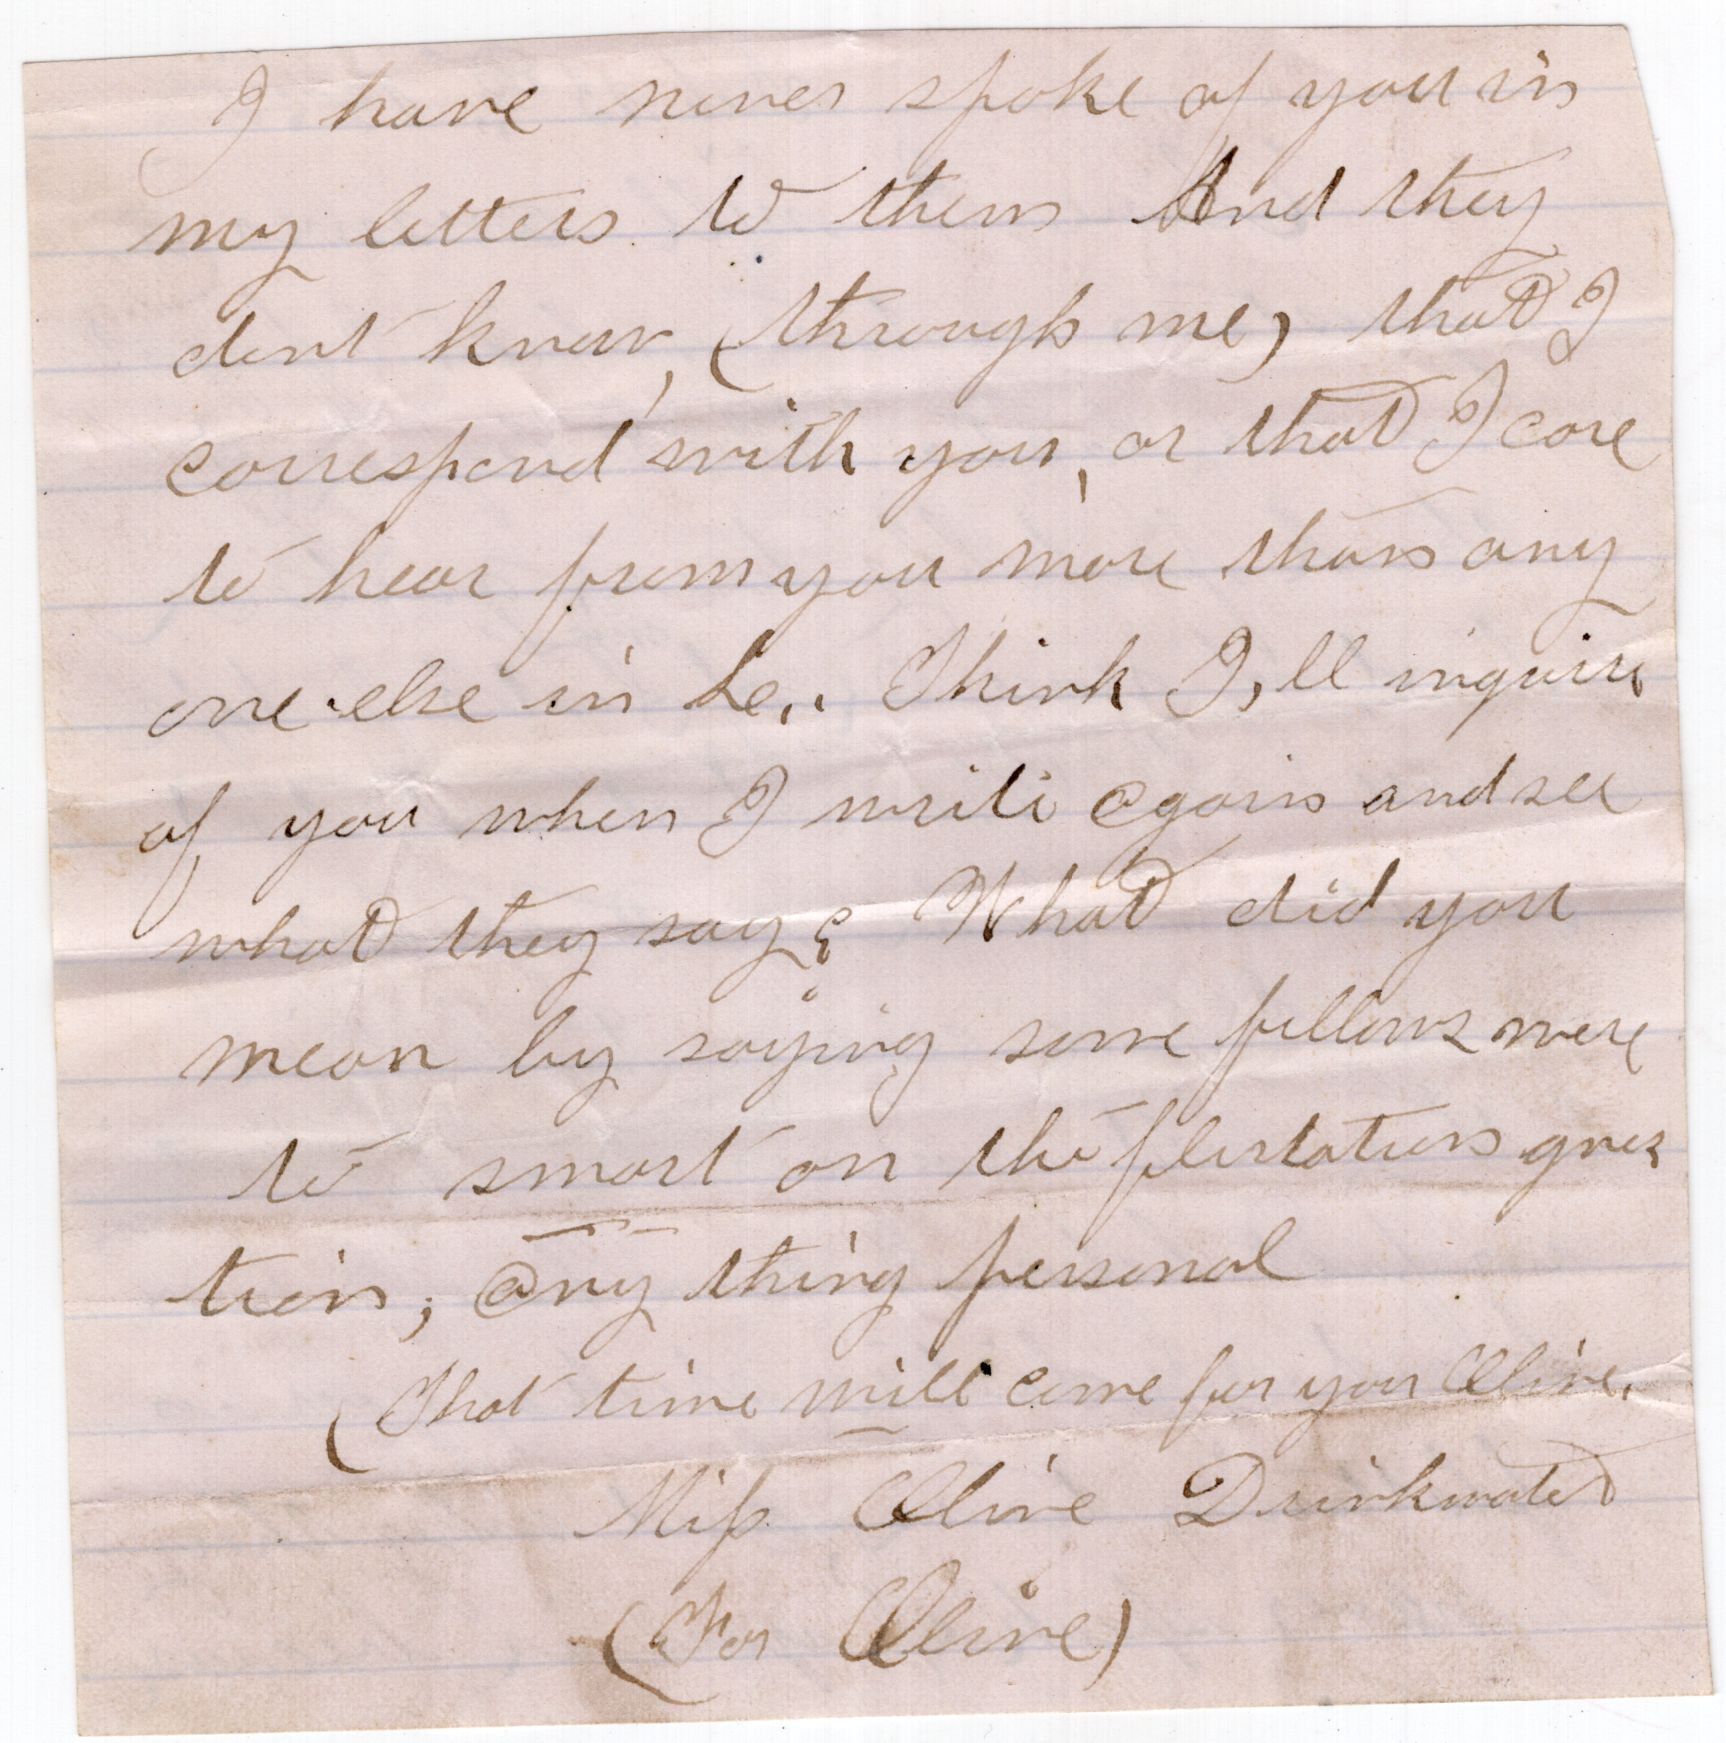 I have never spoke of you in
my letters to them And they
dont know, (through me) that I
correspond with you, or that I care
to hear from you more than any
one else in Le,. Think I,ll inquire
of you when I write again and see
what they say? What did you
mean by saying some fellows were
to smart on the flirtation ques
tion; any thing personal
(That time will come for you Olive.
Miss Olive Drinkwater
(For Olive)